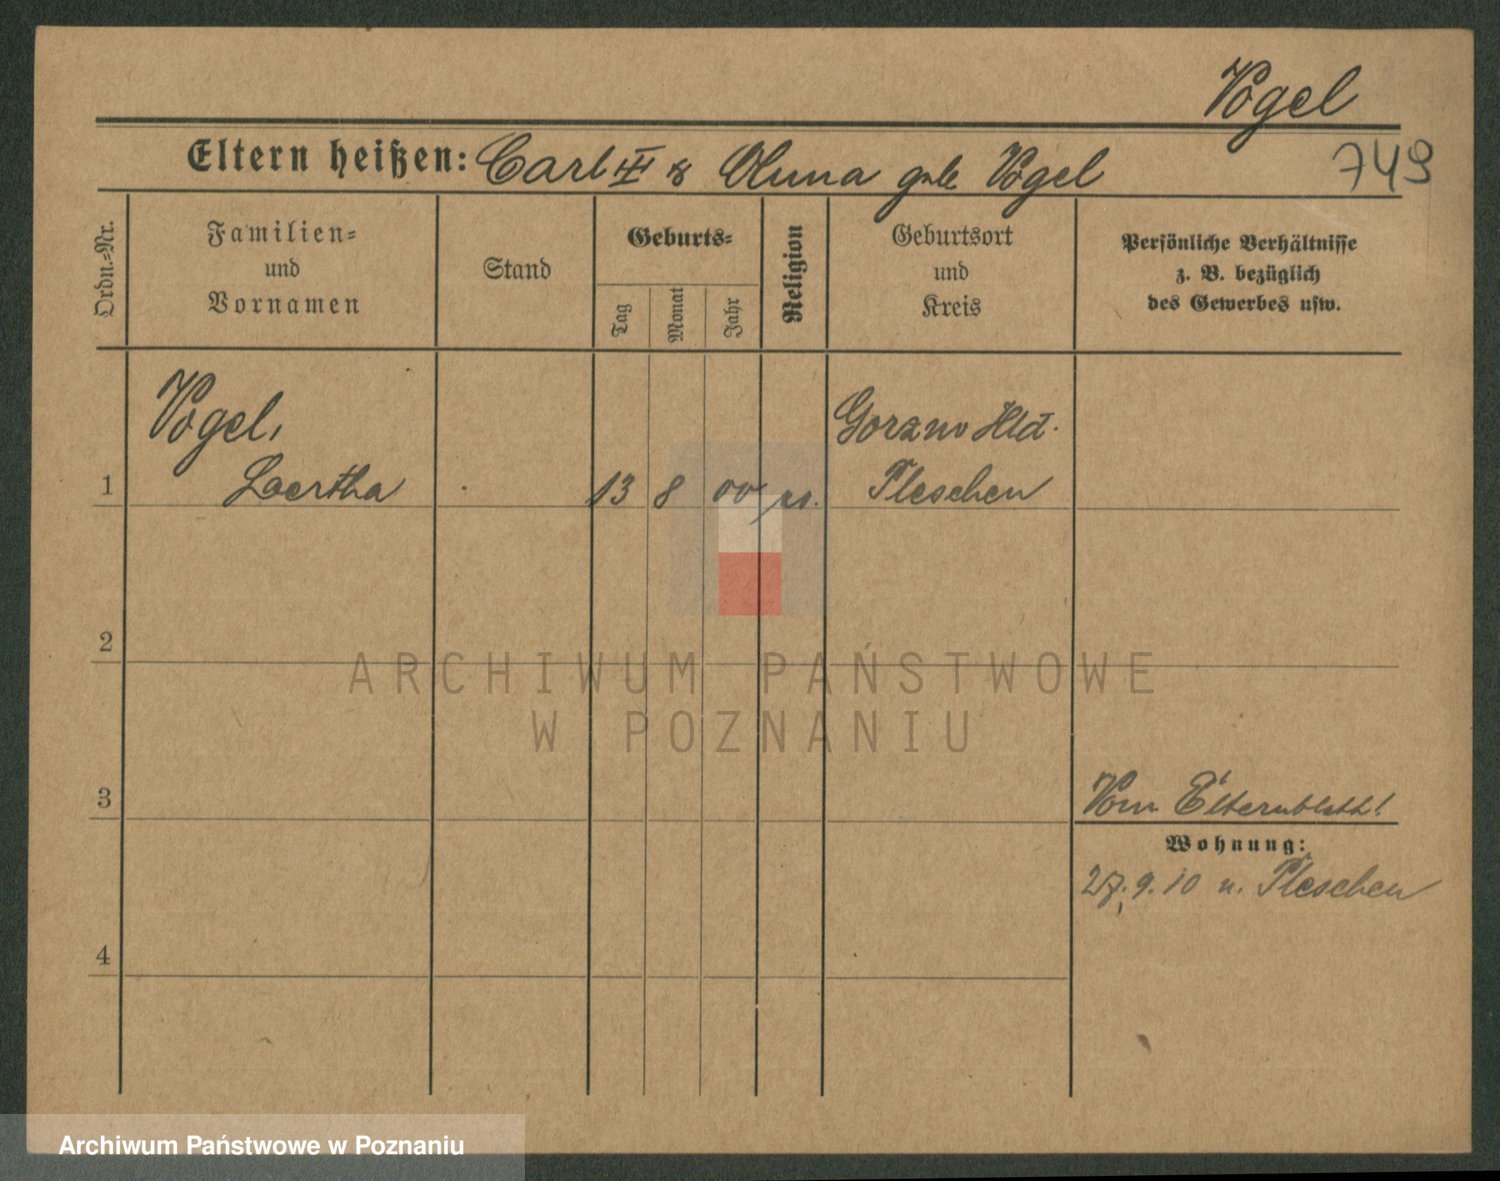 Vogel
749
Eltern heißen: Carl III & Anna geb Vogel
Ordn.-Nr.
Familien-
und
Vornamen
Stand
Geburts-
Tag
Monat
Jahr
Religion
Geburtsort
und
Kreis
Persönliche Verhältnisse
z. B. bezüglich
des Gewerbes usw.
Vogel,
Gorzno Hld.
1 13 8 00 Pleschen
2
3 Vom Elternblatt!
Wohnung:
27.9.10 n. Pleschen
4
ARCHIWUM PAŃSTWOWE
W POZNANIU
Archiwum Państwowe w Poznaniu